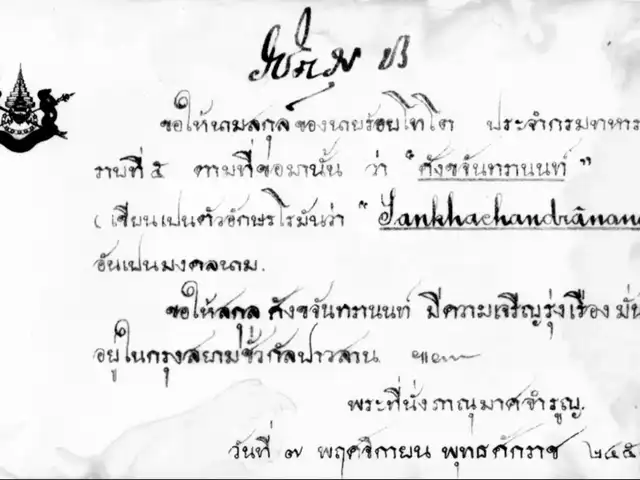 ขอให้นามสกุลของนายร้อยโทโต ประจำกรมทหาร
ราบที่ ๕ ตามที่ขอมานั้น ว่า "ศังขจันทรานนท์"
(เขียนเปนตัวอักษรโรมันว่า "Sankhachandrānan
อันเปนมงคลนาม.
ขอให้สกุล ศังขจันทรานนท์ มีความเจริญรุ่งเรือง มั่น
อยู่ในกรุงสยามชั่วกัลปาวสาน
พระที่นั่งภาณุมาศจำรูญ.
วันที่ ๗ พฤศจิกายน พุทธศักราช ๒๔๕